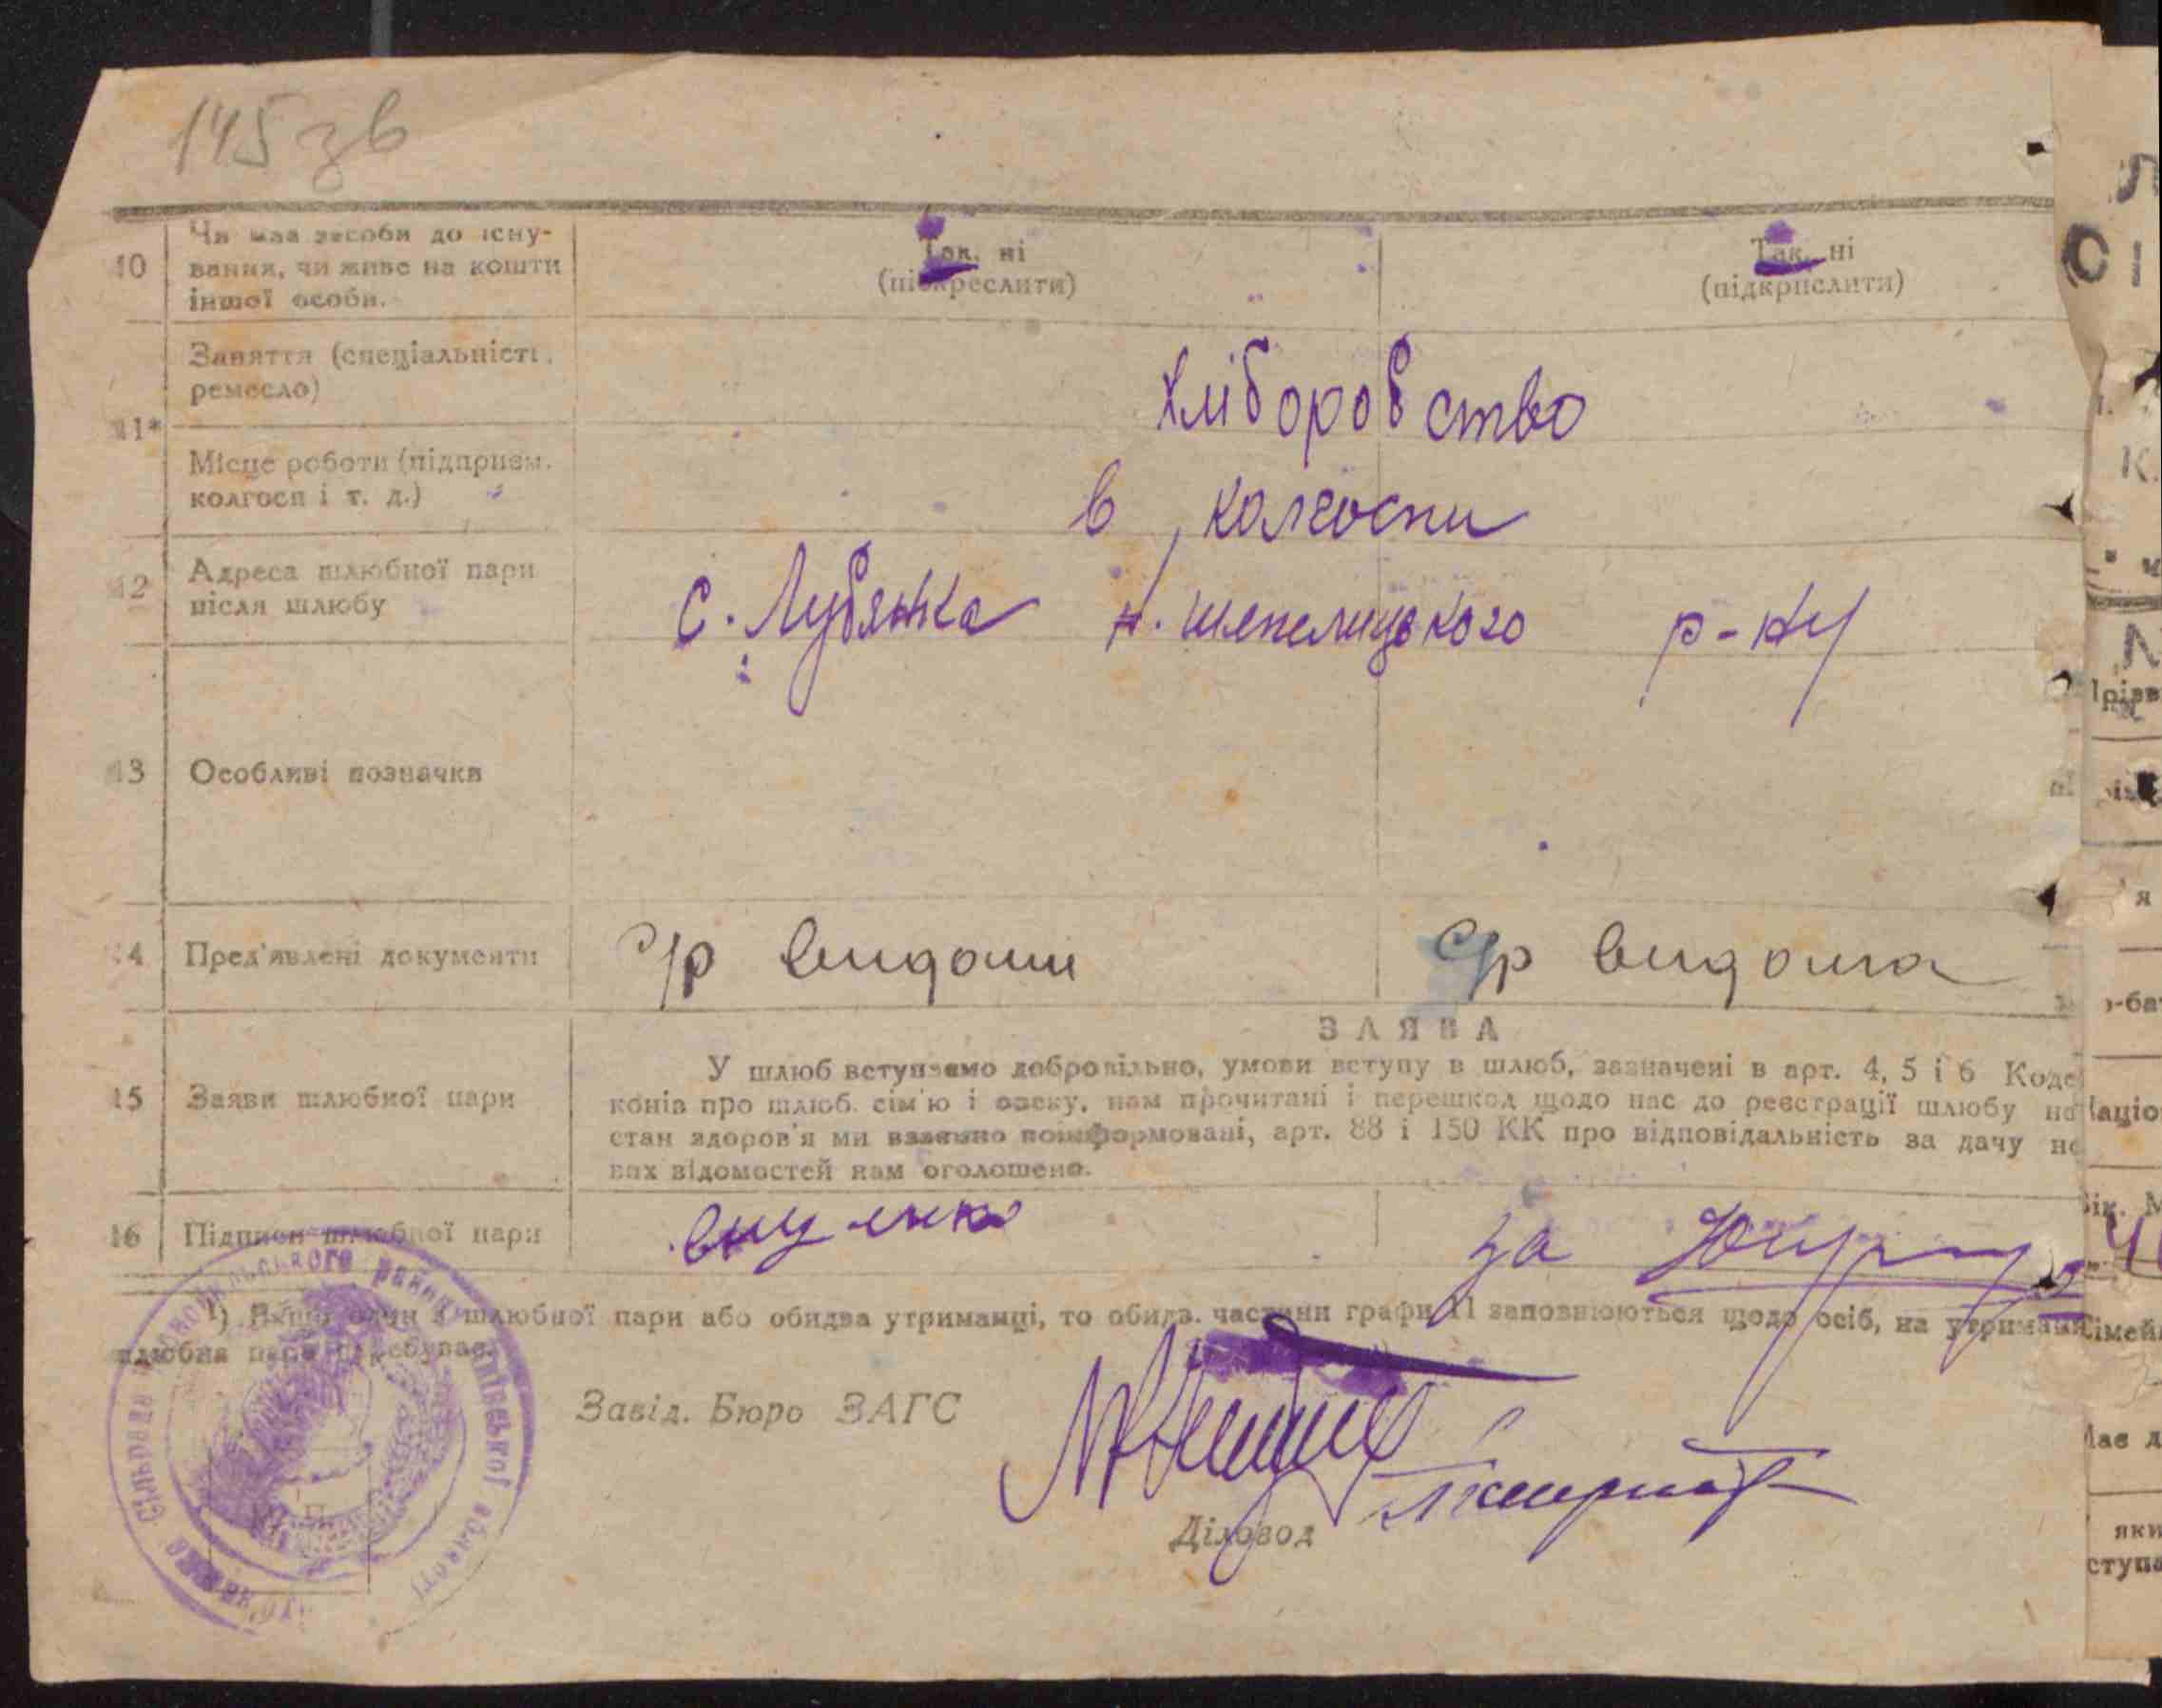 145 зв
10 Чи має засоби до існу-
вання, чи живе на кошти
іншої особи.
Так, ні
(підкреслити)
Так, ні
(підкрислити)
11* Заняття (спеціальність,
ремесло)
Хліборобство
Місце роботи (підприєм.
колгосп і т. д.)
в колгоспи
12 Адреса шлюбної пари
після шлюбу
с. Лубянка н. шепелицького р-ну
13 Особливі позначки
14 Пред'явлені документи
с/р видоми
с/р видома
15 Заяви шлюбної пари
ЗАЯВА
У шлюб вступаємо добровільно, умови вступу в шлюб, зазначені в арт. 4, 5 і 6 Коде
конів про шлюб, сім'ю і опеку, нам прочитані і перешкод щодо нас до реєстрації шлюбу
стан здоров'я ми взаємно поінформовані, арт. 88 і 150 КК про відповідальність за дачу не
вих відомостей нам оголошено.
16 Підписи шлюбної пари
за
¹) Якщо один з шлюбної пари або обидва утриманці, то обидв. частини графи 11 заповнюються щодо осіб, на утриманні
шлюбна пара перебуває.
Завід. Бюро ЗАГС
Діловод
М. П.